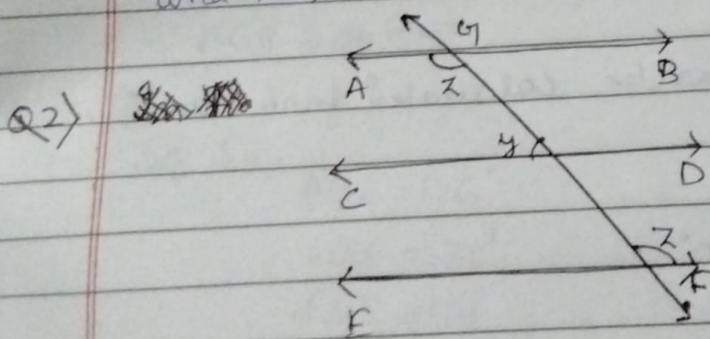 Q2)
G
A
B
z
y
C
D
z
E
F